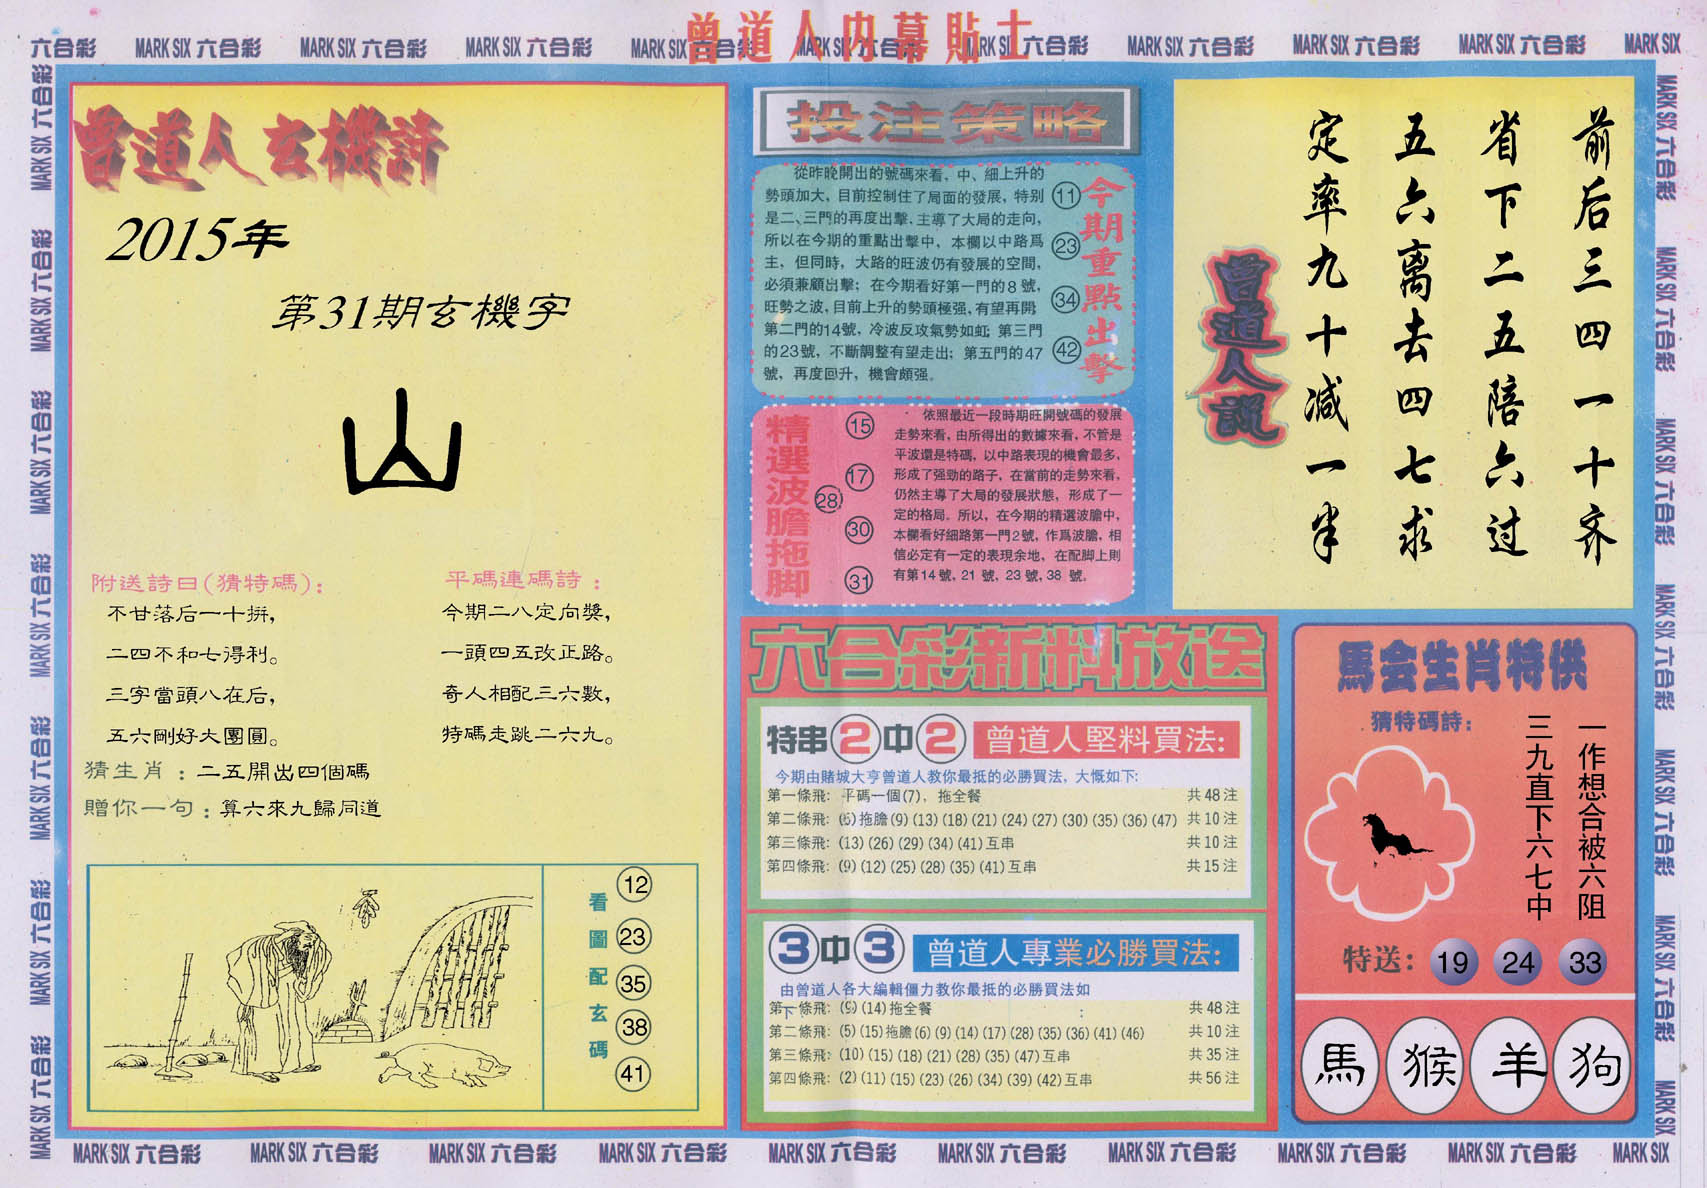 曾道人内幕貼士
六合彩 MARK SIX 六合彩 MARK SIX 六合彩 MARK SIX 六合彩 MARK SIX 六合彩 MARK SIX 六合彩 MARK SIX 六合彩 MARK SIX 六合彩 MARK SIX 六合彩 MARK SIX
曾道人玄機詩
2015年
第31期玄機字
山
附送詩曰(猜特碼):
不甘落后一十拼,
二四不和七得利。
三字當頭八在后,
五六剛好大團圓。
平碼連碼詩:
今期二八定向獎,
一頭四五改正路。
奇人相配三六數,
特碼走跳二六九。
猜生肖:二五開出四個碼
贈你一句:算六來九歸同道
看圖配玄碼
12
23
35
38
41
投注策略
從昨晚開出的號碼來看,中、細上升的
勢頭加大,目前控制住了局面的發展,特别
是二、三門的再度出擊,主導了大局的走向,
所以在今期的重點出擊中,本欄以中路爲
主,但同時,大路的旺波仍有發展的空間,
必須兼顧出擊;在今期看好第一門的8號,
旺勢之波,目前上升的勢頭極强,有望再開;
第二門的14號,冷波反攻氣勢如虹;第三門
的23號,不斷調整有望走出;第五門的47
號,再度回升,機會頗强。
今期重點出擊
11
23
34
42
精選波膽拖脚
15
17
28
30
31
依照最近一段時期旺開號碼的發展
走勢來看,由所得出的數據來看,不管是
平波還是特碼,以中路表現的機會最多,
形成了强勁的路子,在當前的走勢來看,
仍然主導了大局的發展狀態,形成了一
定的格局。所以,在今期的精選波膽中,
本欄看好細路第一門2號,作爲波膽,相
信必定有一定的表現余地,在配脚上則
有第14號,21號,23號,38號。
六合彩新料放送
特串2中2 曾道人堅料買法:
今期由賭城大亨曾道人教你最抵的必勝買法,大慨如下:
第一條飛: 平碼一個(7),拖全餐 共48注
第二條飛: (6)拖膽(9)(13)(18)(21)(24)(27)(30)(35)(36)(47) 共10注
第三條飛: (13)(26)(29)(34)(41)互串 共10注
第四條飛: (9)(12)(25)(28)(35)(41)互串 共15注
3中3 曾道人專業必勝買法:
由曾道人各大編輯僵力教你最抵的必勝買法如
下:
第一條飛: (9)(14)拖全餐 共48注
第二條飛: (5)(15)拖膽(6)(9)(14)(17)(28)(35)(36)(41)(46) 共10注
第三條飛: (10)(15)(18)(21)(28)(35)(47)互串 共35注
第四條飛: (2)(11)(15)(23)(26)(34)(39)(42)互串 共56注
前后三四一十齐
省下二五陪六过
五六离去四七求
定率九十减一半
曾道人説
馬会生肖特供
猜特碼詩:
一作想合被六阻
三九直下六七中
特送: 19 24 33
馬 猴 羊 狗
MARK SIX 六合彩 MARK SIX 六合彩 MARK SIX 六合彩 MARK SIX 六合彩 MARK SIX 六合彩 MARK SIX 六合彩 MARK SIX 六合彩 MARK SIX 六合彩 MARK SIX 六合彩 MARK SIX